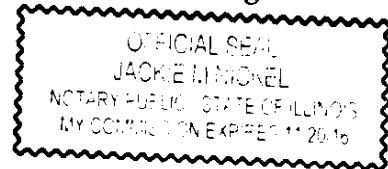 OFFICIAL SEAL
JACKIE M NICKEL
NOTARY PUBLIC - STATE OF ILLINOIS
MY COMMISSION EXPIRES 11